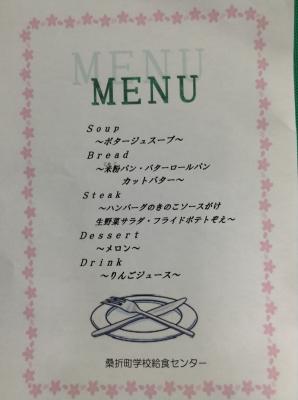 MENU
MENU
Soup
～ポタージュスープ～
Bread
～米粉パン・バターロールパン
カットバター～
Steak
～ハンバーグのきのこソースがけ
生野菜サラダ・フライドポテトぞえ～
Dessert
～メロン～
Drink
～りんごジュース～
桑折町学校給食センター